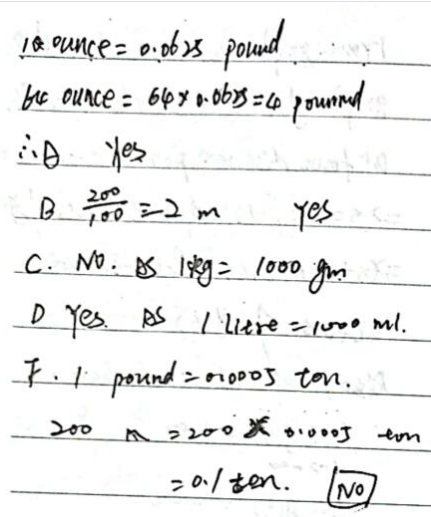 1 ounce = 0.0625 pound
64 ounce = 64 x 0.0625 = 4 pound
∴ A Yes
B 200/100 = 2 m yes
C. NO. As 1kg = 1000 gm
D Yes. As 1 Litre = 1000 ml.
F. 1 pound = 0.0005 ton.
200 = 200 x 0.0005 ton
= 0.1 ton. NO